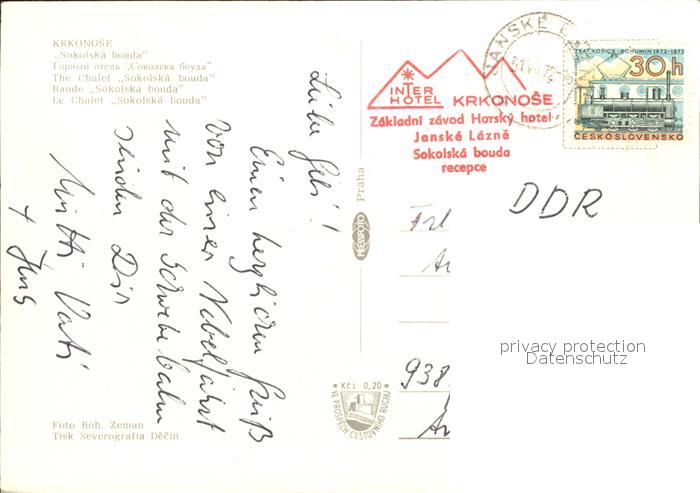 KRKONOŠE
„Sokolská bouda"
Горный отель „Соколска боуда"
The Chalet „Sokolská bouda"
Baude „Sokolská bouda"
Le Chalet „Sokolská bouda"
Einen herzlichen Gruß
von einer Nebelfahrt
mit der Schwebebahn
senden Dir
Mutti Vati
Foto Boh. Zeman
Tisk Severografia Děčín
Praha
PRESSFOTO
Kčs 0,20
VE PROSPĚCH CESTOVNÍHO RUCHU
INTER
HOTEL KRKONOŠE
Základní závod Horský hotel
Janské Lázně
Sokolská bouda
recepce
JANSKÉ
TRAŤ KOŠICE - BOHUMÍN 1872-1972
30h
ČESKOSLOVENSKO
DDR
938
privacy protection
Datenschutz